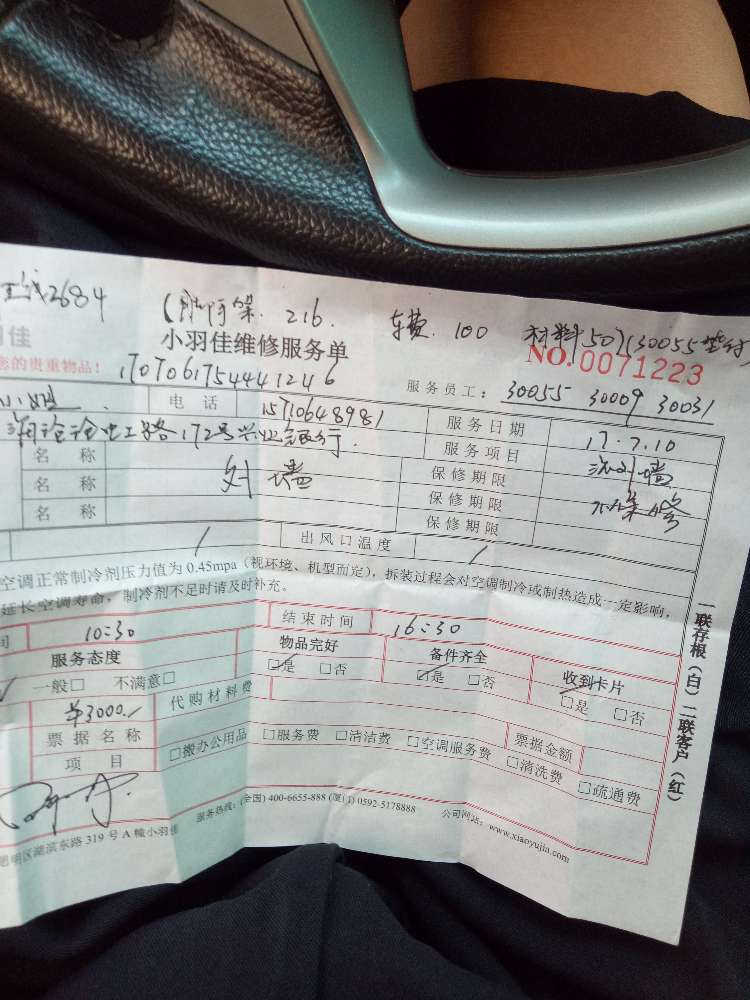 2684 216. 车费. 100 材料50 (30055垫付)
佳 小羽佳维修服务单 NO.0071223
您的贵重物品! 1707061754441246 服务员工: 30055 30009 30031
电 话 15710648981 服务日期 17.7.10
路172号兴业银行. 服务项目 外墙
名 称 外墙 保修期限 维修
名 称 保修期限
名 称 保修期限
/ 出风口温度 /
空调正常制冷剂压力值为 0.45mpa(视环境、机型而定),拆装过程会对空调制冷或制热造成一定影响,
延长空调寿命,制冷剂不足时请及时补充。
间 10:30 结束时间 16:30
服务态度 物品完好 备件齐全 收到卡片
一般□ 不满意□ ☑是 □否 ☑是 □否 □是 □否
¥3000./ 代购材料费
票据名称 票据金额
项 目 □搬办公用品 □服务费 □清洁费 □空调服务费 □清洗费 □疏通费
服务热线:(全国) 400-6655-888 (厦门) 0592-5178888 公司网站: www.xiaoyujia.com
思明区湖滨东路 319 号 A 幢小羽佳
一联存根(白)二联客户(红)